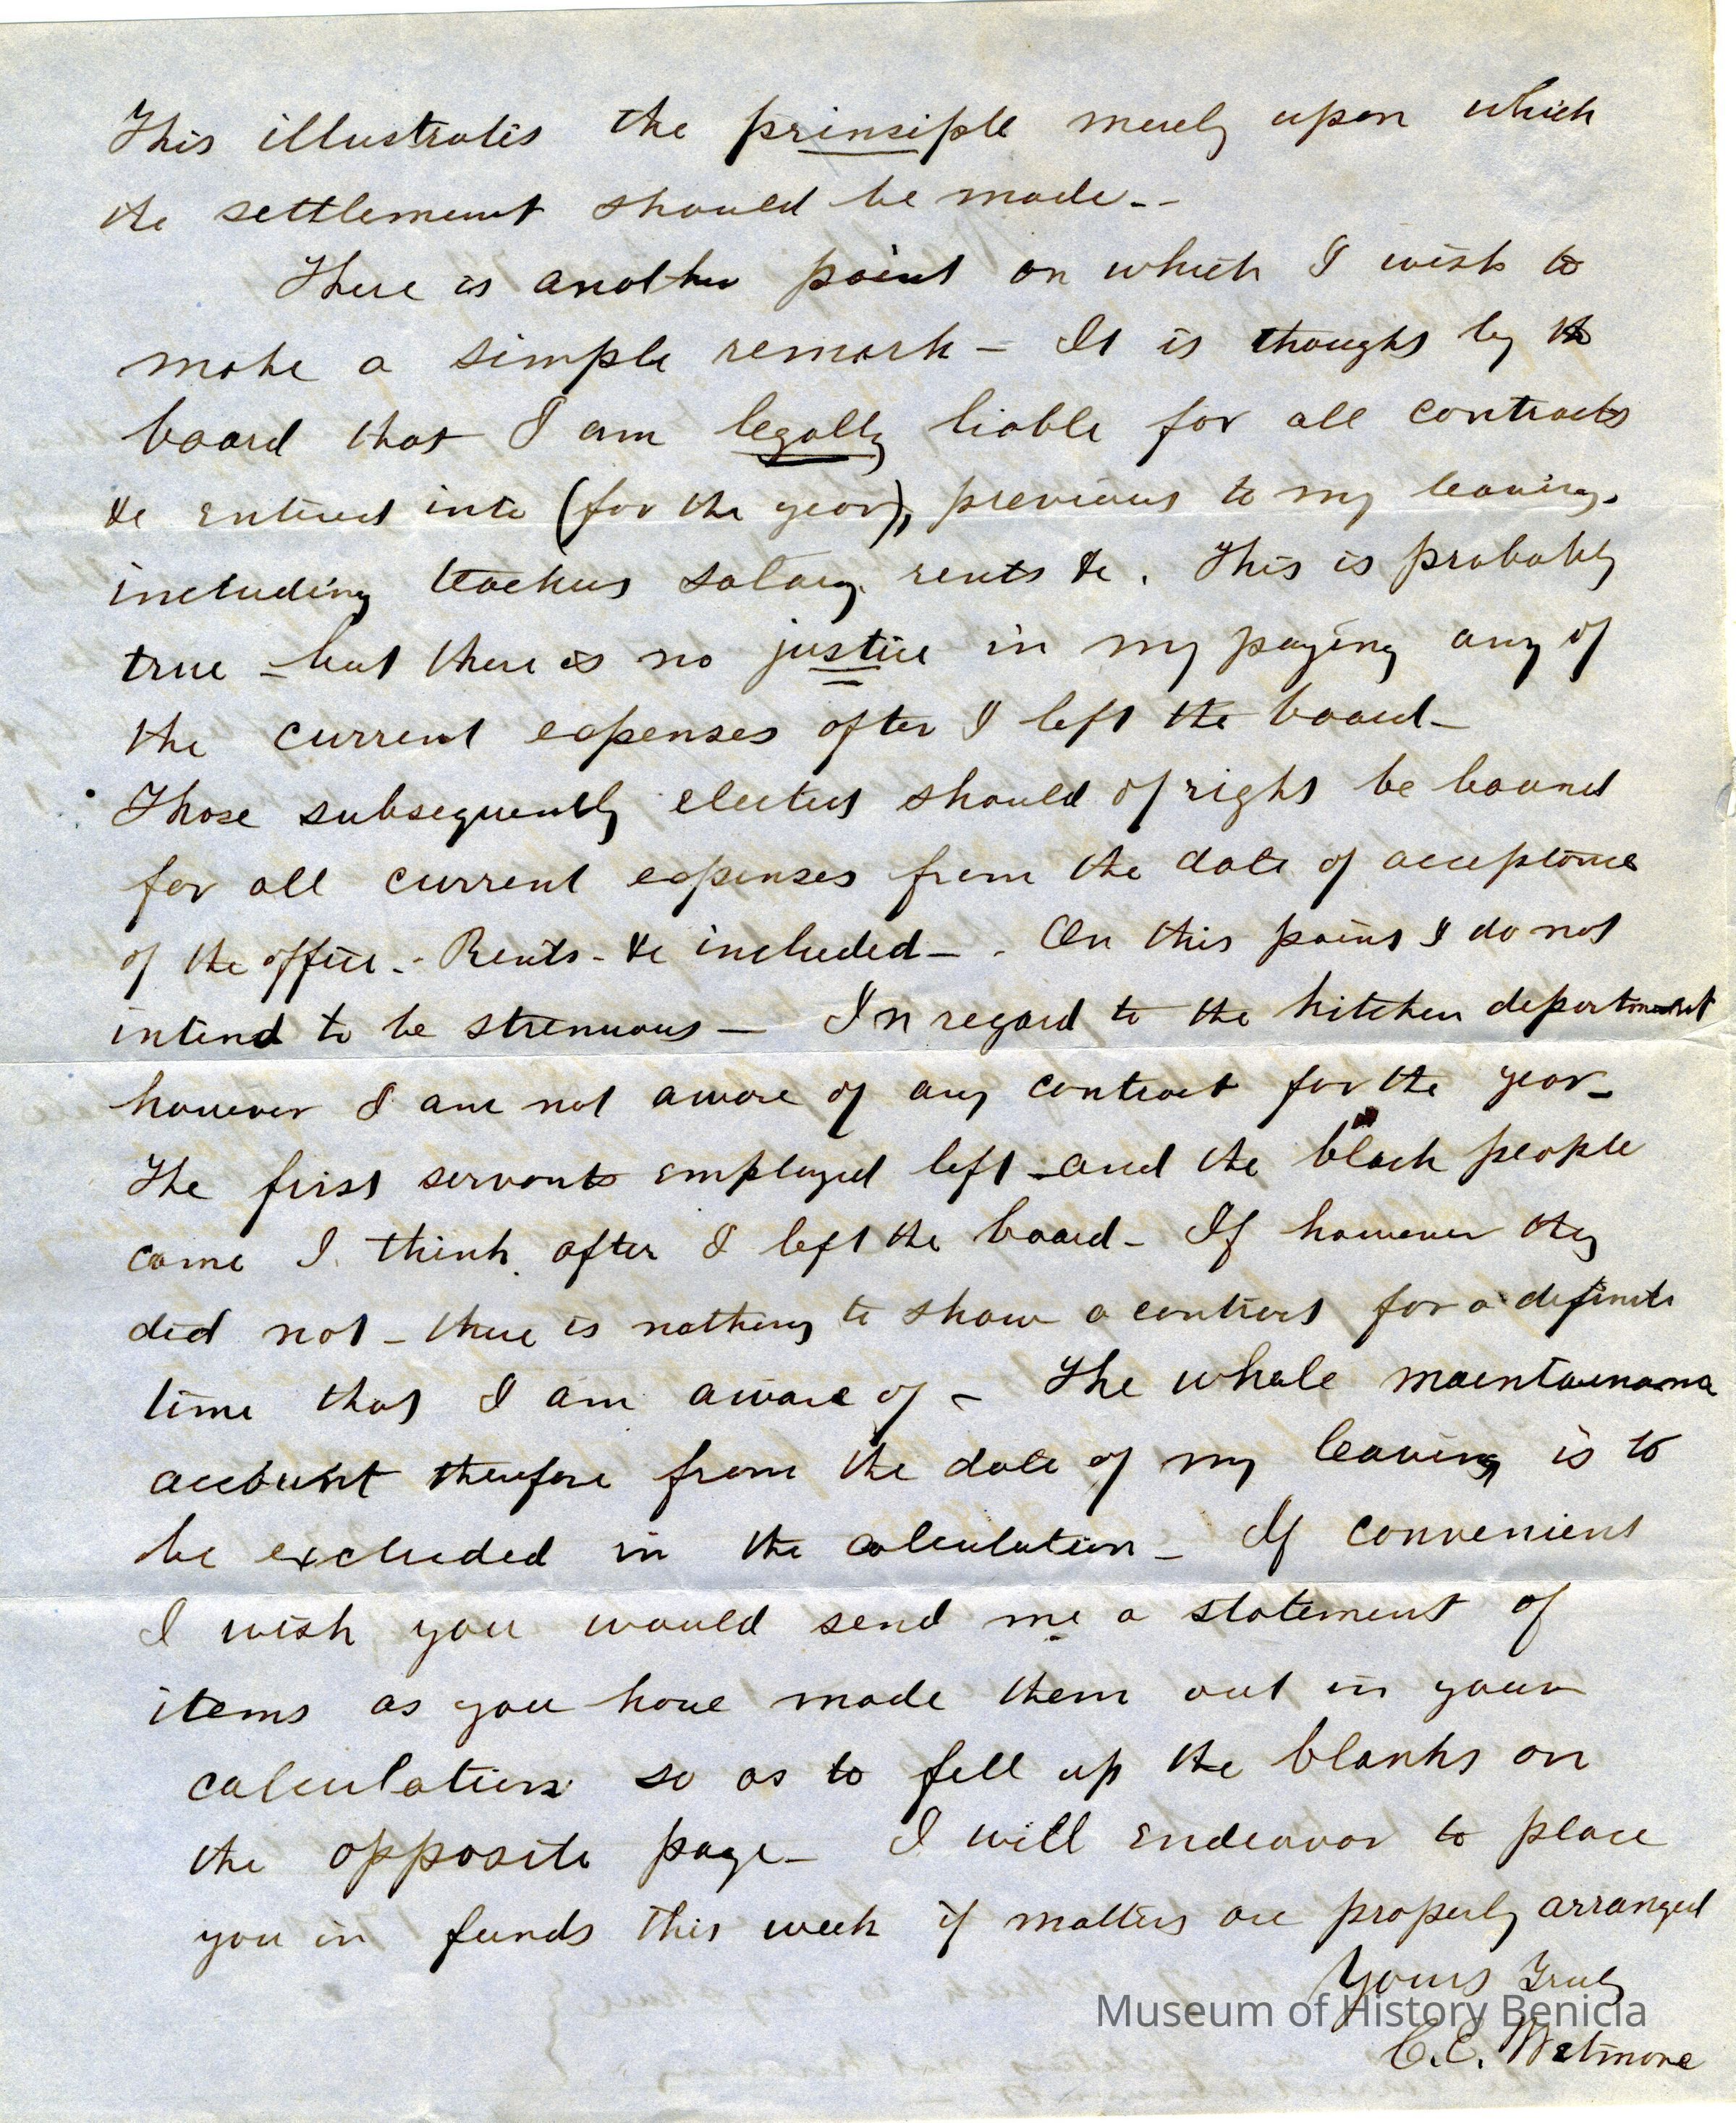 This illustrates the prinsiple merely upon which
the settlement should be made--
There is another point on which I wish to
make a simple remark - It is thought by the
board that I am legally liable for all contracts
&c entered into (for the year), previous to my leaving.
including teachers salary. rents &c. This is probably
true - but there is no justice in my paying any of
the current expenses after I left the board-
Those subsequently elected should of right be bound
for all current expenses from the date of acceptance
of the office.- Rents - &c included - . On this point I do not
intend to be strenuous - In regard to the kitchen department
however I am not aware of any contract for the year-
The first servants employed left - and the black people
came I think after I left the board - If however they
did not - there is nothing to show a contract for a definite
time that I am aware of - The whole maintainance
account therefore from the date of my leaving is to
be excluded in the calculation - If convenient
I wish you would send me a statement of
items as you have made them out in your
calculation so as to fill up the blanks on
the opposite page - I will endeavor to place
you in funds this week if matters are properly arranged
Yours Truly
Museum of History Benicia
C.E. Wetmore